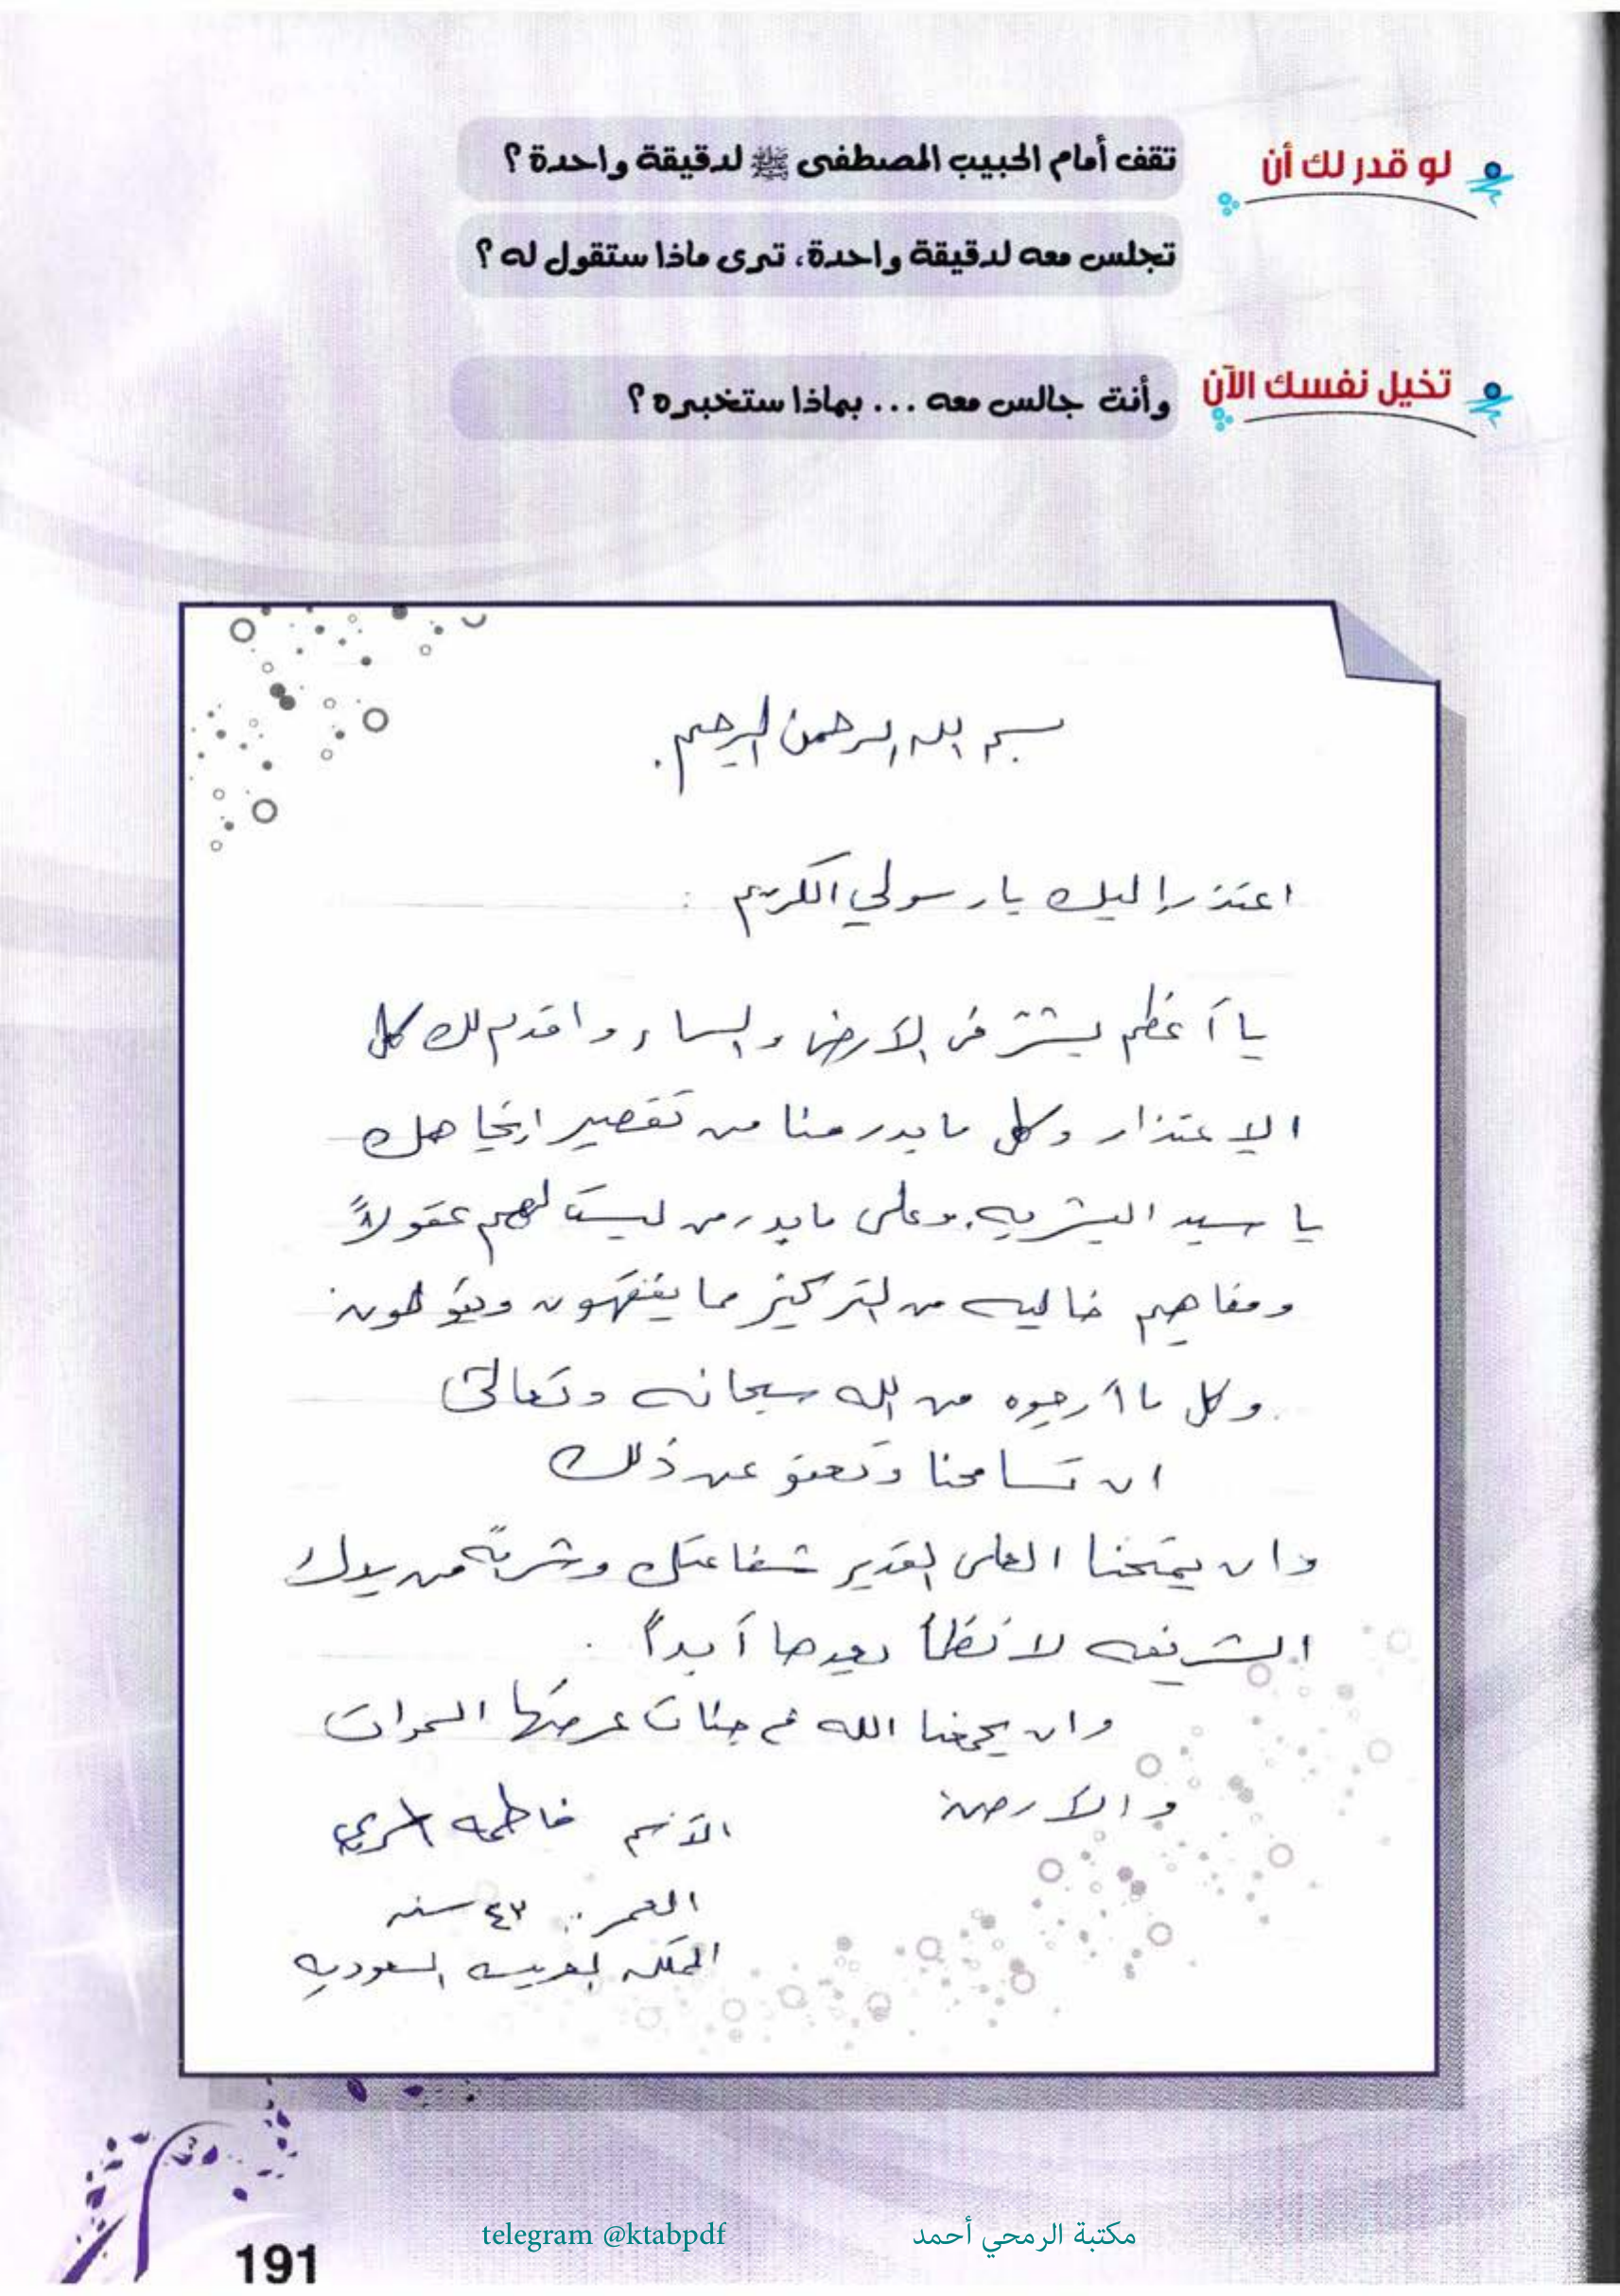 لو قدر لك أن
تقف أمام الحبيب المصطفى ﷺ لدقيقة واحدة ؟
تجلس معه لدقيقة واحدة، ترى ماذا ستقول له ؟
تخيل نفسك الآن
وأنت جالس معه ... بماذا ستخبره ؟
بسم الله الرحمن الرحيم .
اعتذر إليك يا رسولي الكريم :
يا أعظم بشر في الأرض والسماء واقدم لك كل
الاعتذار وكل ما بدر منا من تقصير اتجاهك
يا سيد البشريه. وعلى ما بدر من ليست لهم عقولاً
ومفاهيم خاليه من التركيز مما يفقهون ويقولون
وكل ما أرجوه من الله سبحانه وتعالى
ان تسامحنا وتعفو عن ذلك
وان يمنحنا العلي القدير شفاعتك وشربة من يدك
الشريفه لا نظمأ بعدها أبداً .
وان يجمعنا الله في جنات عرضها السموات
والأرض
الأسم فاطمه
العمر : ٤٣ سنه
المملكه العربيه السعوديه
telegram @ktabpdf
مكتبة الرمحي أحمد
191